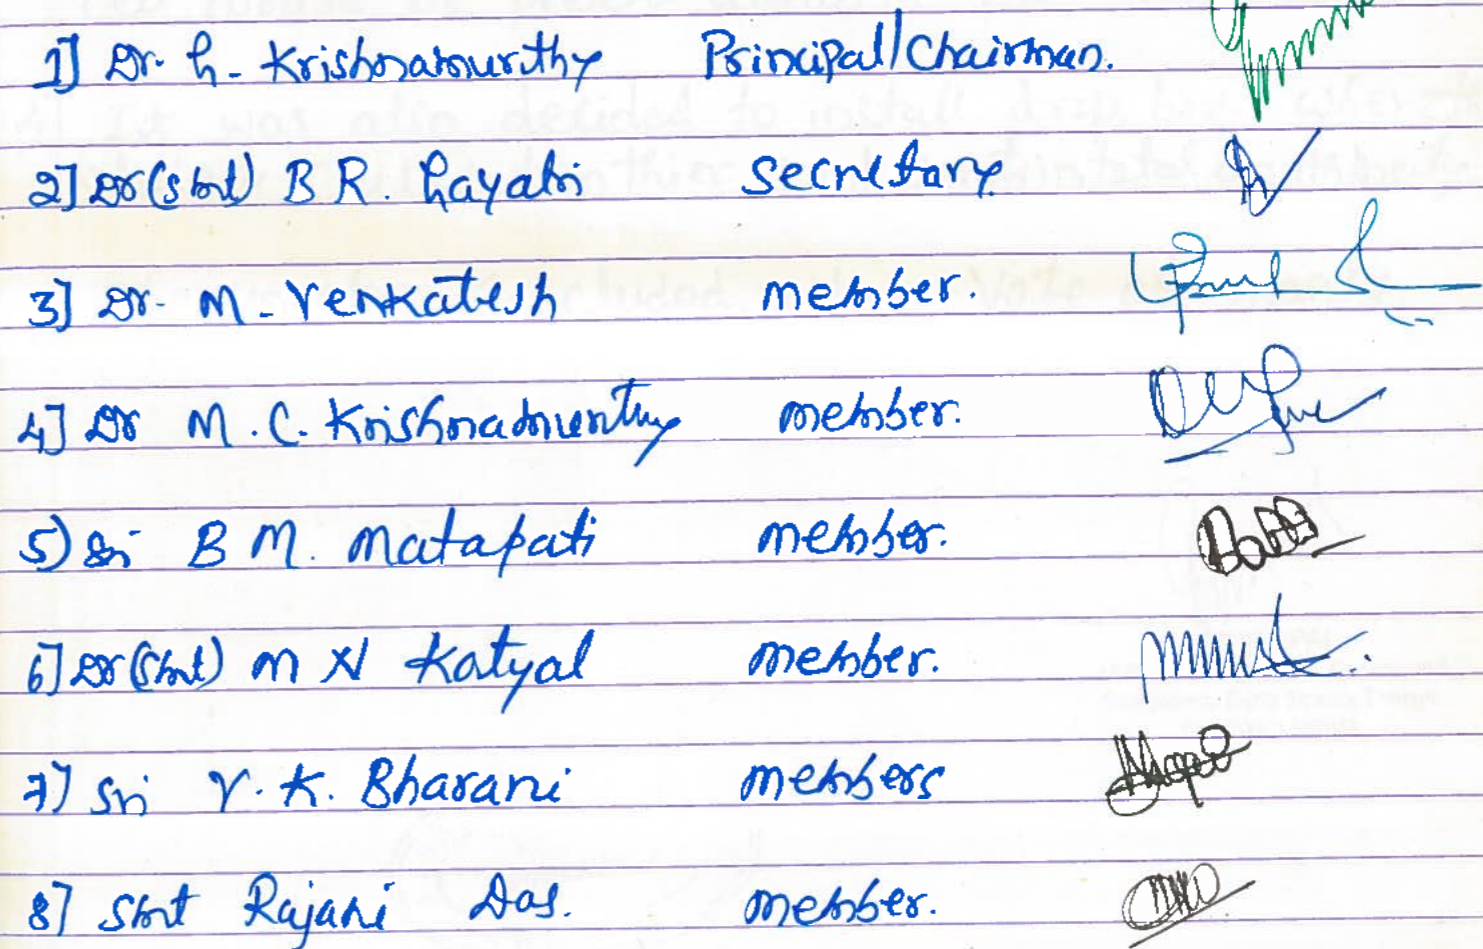 1] Dr. G. Krishnamurthy Principal/Chairman.
2] Dr(Smt) B R. Gayatri Secretary
3] Dr. M. Venkatesh member.
4] Dr M. C. Krishnamurthy member.
5) Sri B M. Matapati member.
6] Dr(Smt) M N Katyal member.
7) Sri V. K. Bharani members
8] Smt Rajani Das. member.